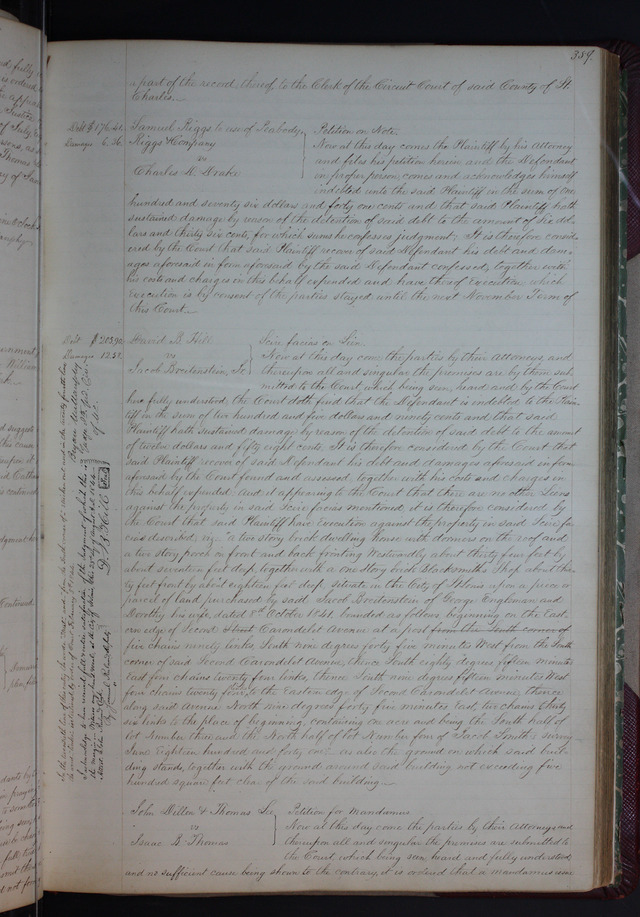 389.
a part of the record thereof, to the Clerk of the Circuit Court of said County of St.
Charles.
Debt $176.41
Damages 6.36
Samuel Riggs to use of Peabody
Riggs & Company
vs
Charles D. Drake
Petition on Note.
Now at this day comes the Plaintiff by his Attorney
and files his petition herein and the Defendant
in proper person, comes and acknowledges himself
indebted unto the said Plaintiff in the sum of One
hundred and seventy six dollars and forty one cents and that said Plaintiff hath
sustained damage by reason of the detention of said debt to the amount of six dol-
lars and thirty six cents, for which sums he confesses judgment; It is therefore consid-
ered by the Court that said Plaintiff recover of said Defendant his debt and dam-
ages aforesaid in form aforesaid by the said Defendant confessed, together with
his costs and charges in this behalf expended and have thereof Execution which
execution is by consent of the parties stayed until the next November Term of
this Court.
Debt $205.90
Damages 12.58
David B. Hill
vs
Jacob Boeitenstein, Sr
Scire facias on Lien.
Now at this day come the parties by their Attorneys, and
thereupon all and singular the premises are by them sub-
mitted to the Court which being seen, heard and by the Court
here fully understood, the Court doth find that the Defendant is indebted to the Plain-
tiff in the sum of two hundred and five dollars and ninety cents and that said
Plaintiff hath sustained damage by reason of the detention of said debt to the amount
of twelve dollars and fifty eight cents. It is therefore considered by the Court that
said Plaintiff recover of said Defendant his debt and damages aforesaid in form
aforesaid by the Court found and assessed, together with his costs and charges in
this behalf expended: And it appearing to the Court that there are no other Liens
against the property in said Scire facias mentioned it is therefore considered by
the Court that said Plaintiff have Execution against the property in said Scire fa-
cias described, viz "a two story brick dwelling house with dormers on the roof and
a two story porch in front and back fronting Westwardly about thirty four feet by
about seventeen feet deep, together with a one story brick Blacksmiths Shop about thir-
ty feet front by about eighteen feet deep, situate in the City of St Louis upon a piece or
parcel of land purchased by said Jacob Boeitenstein of George Engelman and
Dorothy his wife, dated 8th October 1841, bounded as follows beginning on the East-
ern edge of Second Carondelet Avenue at a post from the South corner of
five chains ninety links, South nine degrees forty five minutes West from the South
corner of said Second Carondelet Avenue, thence South eighty degrees fifteen minutes
East four chains twenty four links, thence South nine degrees fifteen minutes West
four chains twenty four links to the Eastern edge of Second Carondelet Avenue thence
along said Avenue North nine degrees forty five minutes East, two chains thirty
six links to the place of beginning, containing on acre and being the South half of
lot Number three and the North half of lot Number four of Jacob Smith's survey
June Eighteen hundred and forty one also the ground on which said buil-
ding stands, together with the ground around said building not exceeding five
hundred square feet clear of the said building.
John Dillon & Thomas Lee
vs
Isaac B. Thomas
Petition for Mandamus
Now at this day come the parties by their Attorneys and
thereupon all and singular the premises are submitted to
the Court which being seen, heard and fully understood,
and no sufficient cause being shown to the contrary, it is ordered that a mandamus issue
D. B. Hill
Seal